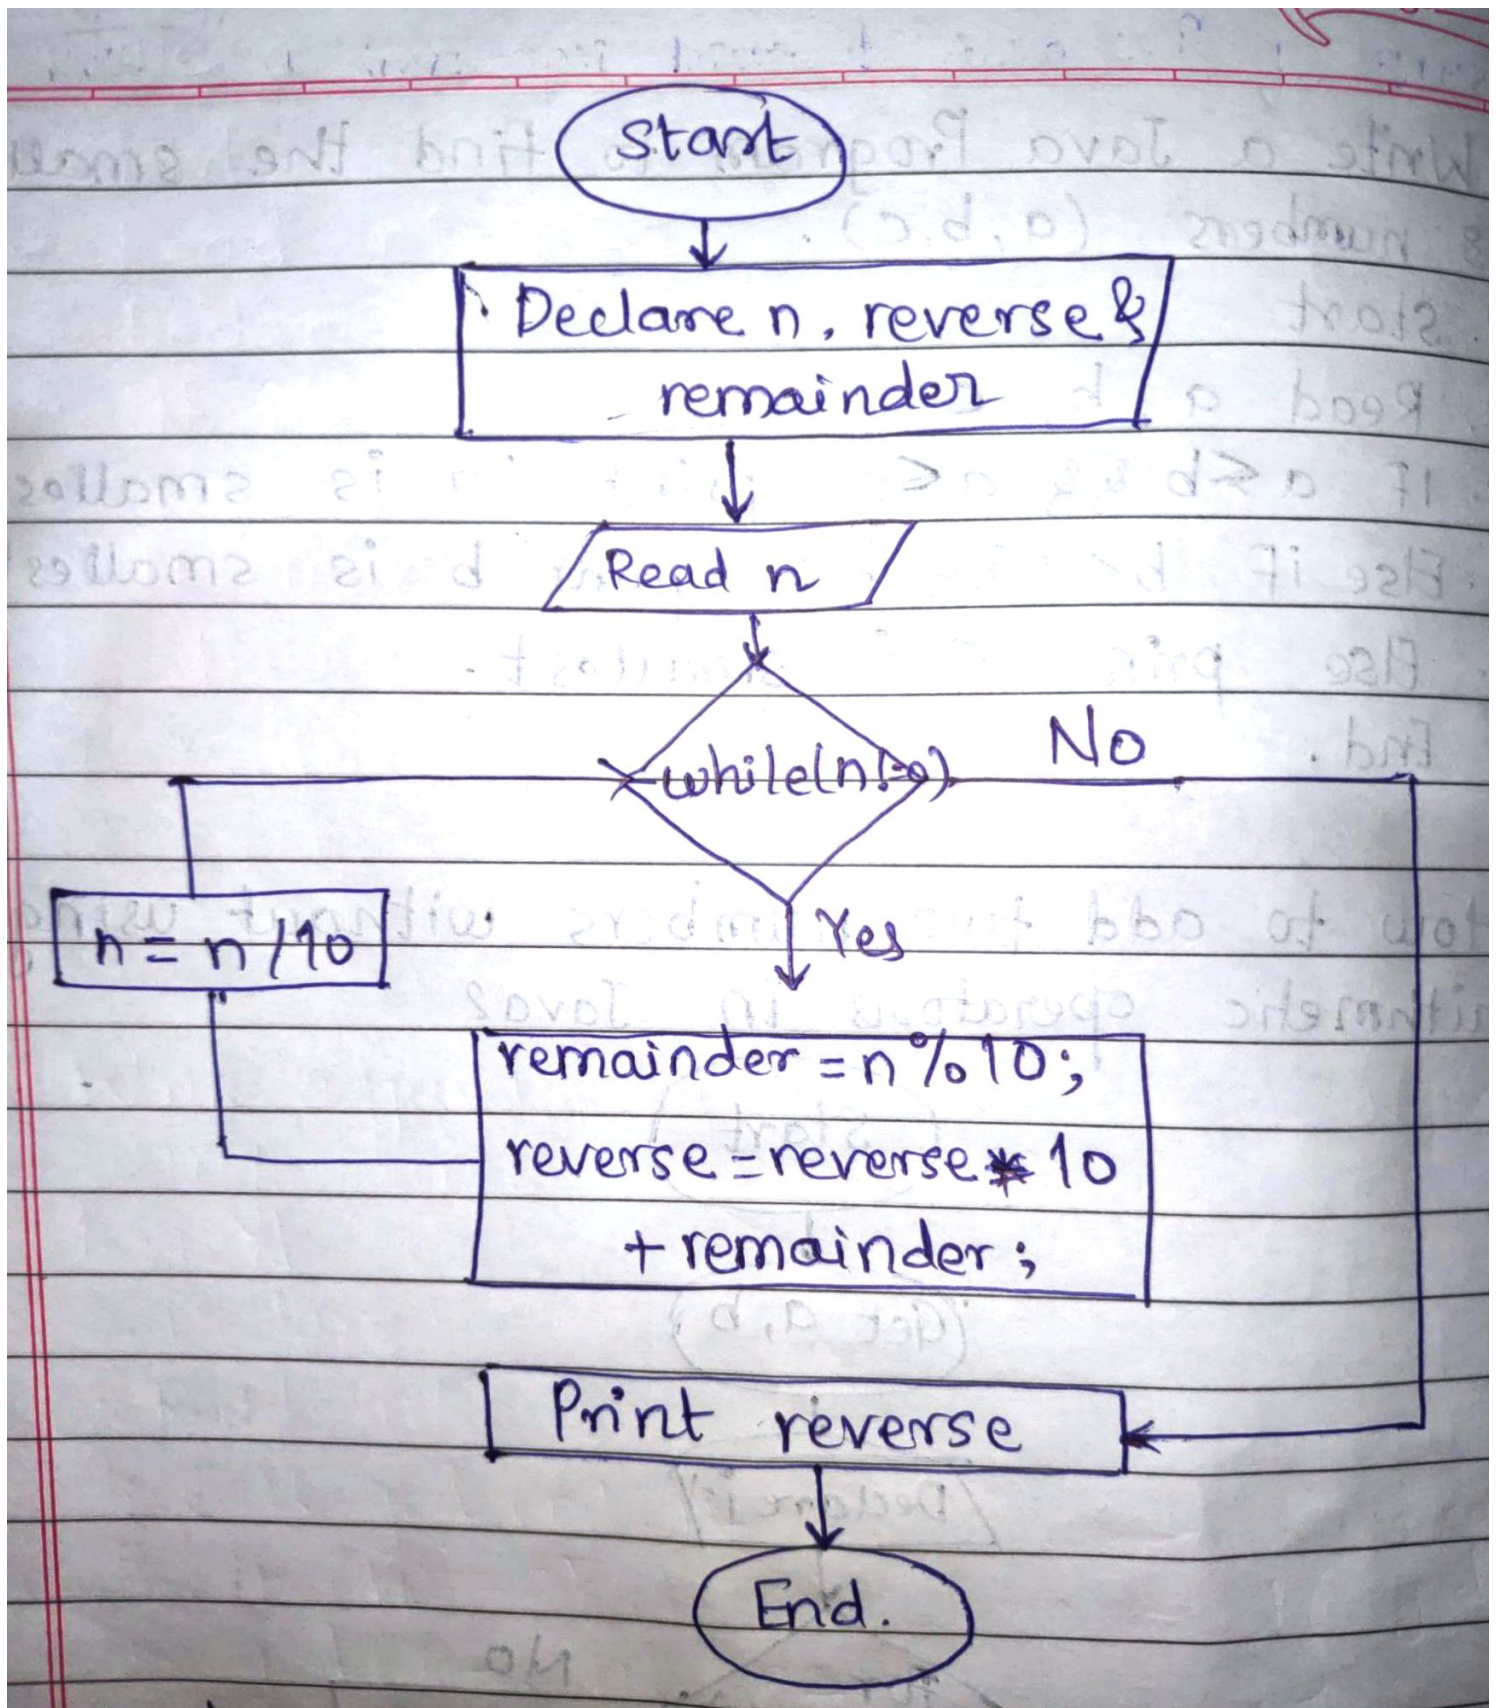 Start
Declare n, reverse &
remainder
Read n
while(n!=0)
No
Yes
n = n/10
remainder = n%10;
reverse = reverse * 10
+ remainder;
Print reverse
End.